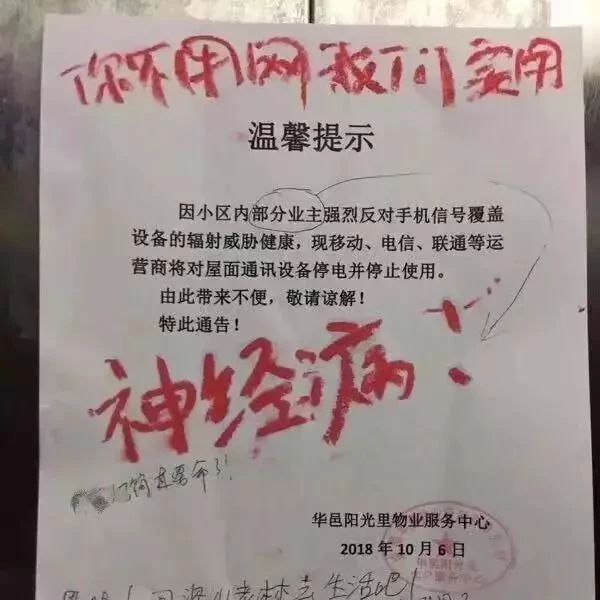 你不用网我们实用
温馨提示
因小区内部分业主强烈反对手机信号覆盖
设备的辐射威胁健康，现移动、电信、联通等运
营商将对屋面通讯设备停电并停止使用。
由此带来不便，敬请谅解！
特此通告！
神经病！
门简直要命了！
华邑阳光里物业服务中心
2018年10月6日
华邑阳光里
服务中心
深山老林去生活吧！